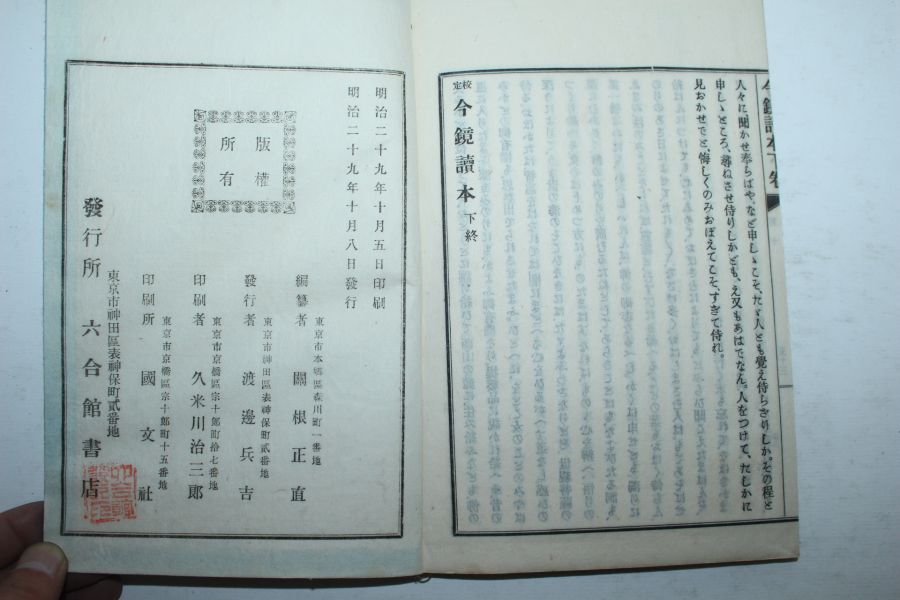 今鏡讀本下卷
人々に聞かせ奉らばや、など申しゝこそ、たゞ人とも覺え侍らざりしか。その程と
申しゝところ、尋ねさせ侍りしかども、え又もあはでなん。人をつけて、たしかに
見おかせでと、悔しくのみおぼえてこそ、すぎて侍れ。
校定 今鏡讀本 下終
明治二十九年十月五日印刷
明治二十九年十月八日發行
版權
所有
東京市本鄕區森川町一番地
編纂者 關根正直
東京市神田區表神保町貳番地
發行者 渡邊兵吉
東京市京橋區宗十郞町拾七番地
印刷者 久米川治三郞
東京市京橋區宗十郞町十五番地
印刷所 國文社
東京市神田區表神保町貳番地
發行所 六合館書店